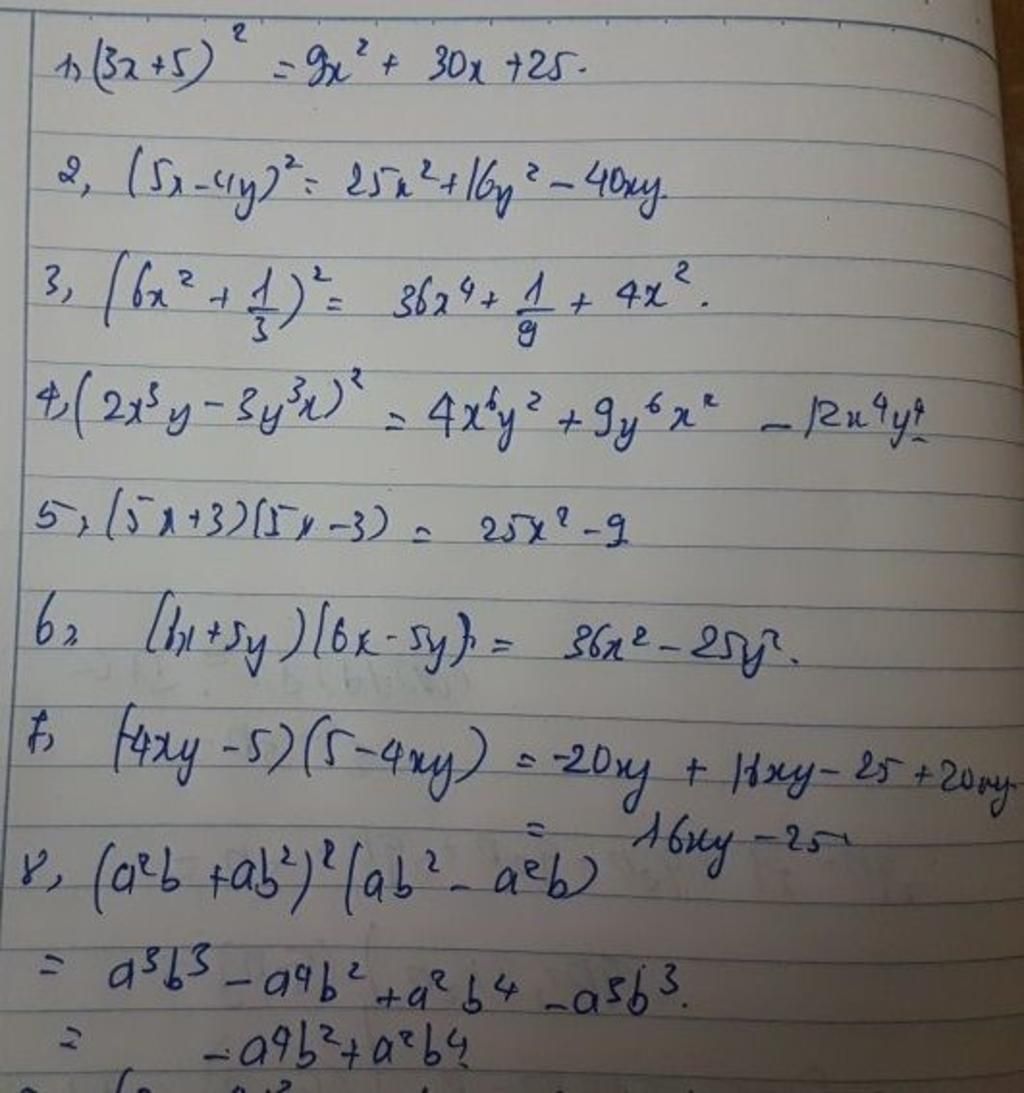 1, (3x+5)² = 9x² + 30x + 25.
2, (5x-4y)² = 25x² + 16y² - 40xy.
3, (6x² + 1/3)² = 36x⁴ + 1/9 + 4x².
4, (2x³y - 3y³x)² = 4x⁶y² + 9y⁶x² - 12x⁴y⁴
5, (5x+3)(5x-3) = 25x² - 9
6, (6x+5y)(6x-5y) = 36x² - 25y².
7, (-4xy - 5)(5 - 4xy) = -20xy + 16xy - 25 + 20xy
= 16xy - 25
8, (a²b + ab²)² (ab² - a²b)
= a³b³ - a⁴b² + a²b⁴ - a³b³.
= -a⁴b² + a²b⁴.